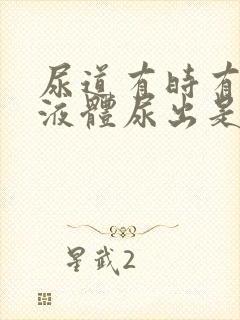 尿道有時有
液體尿出是
星武2